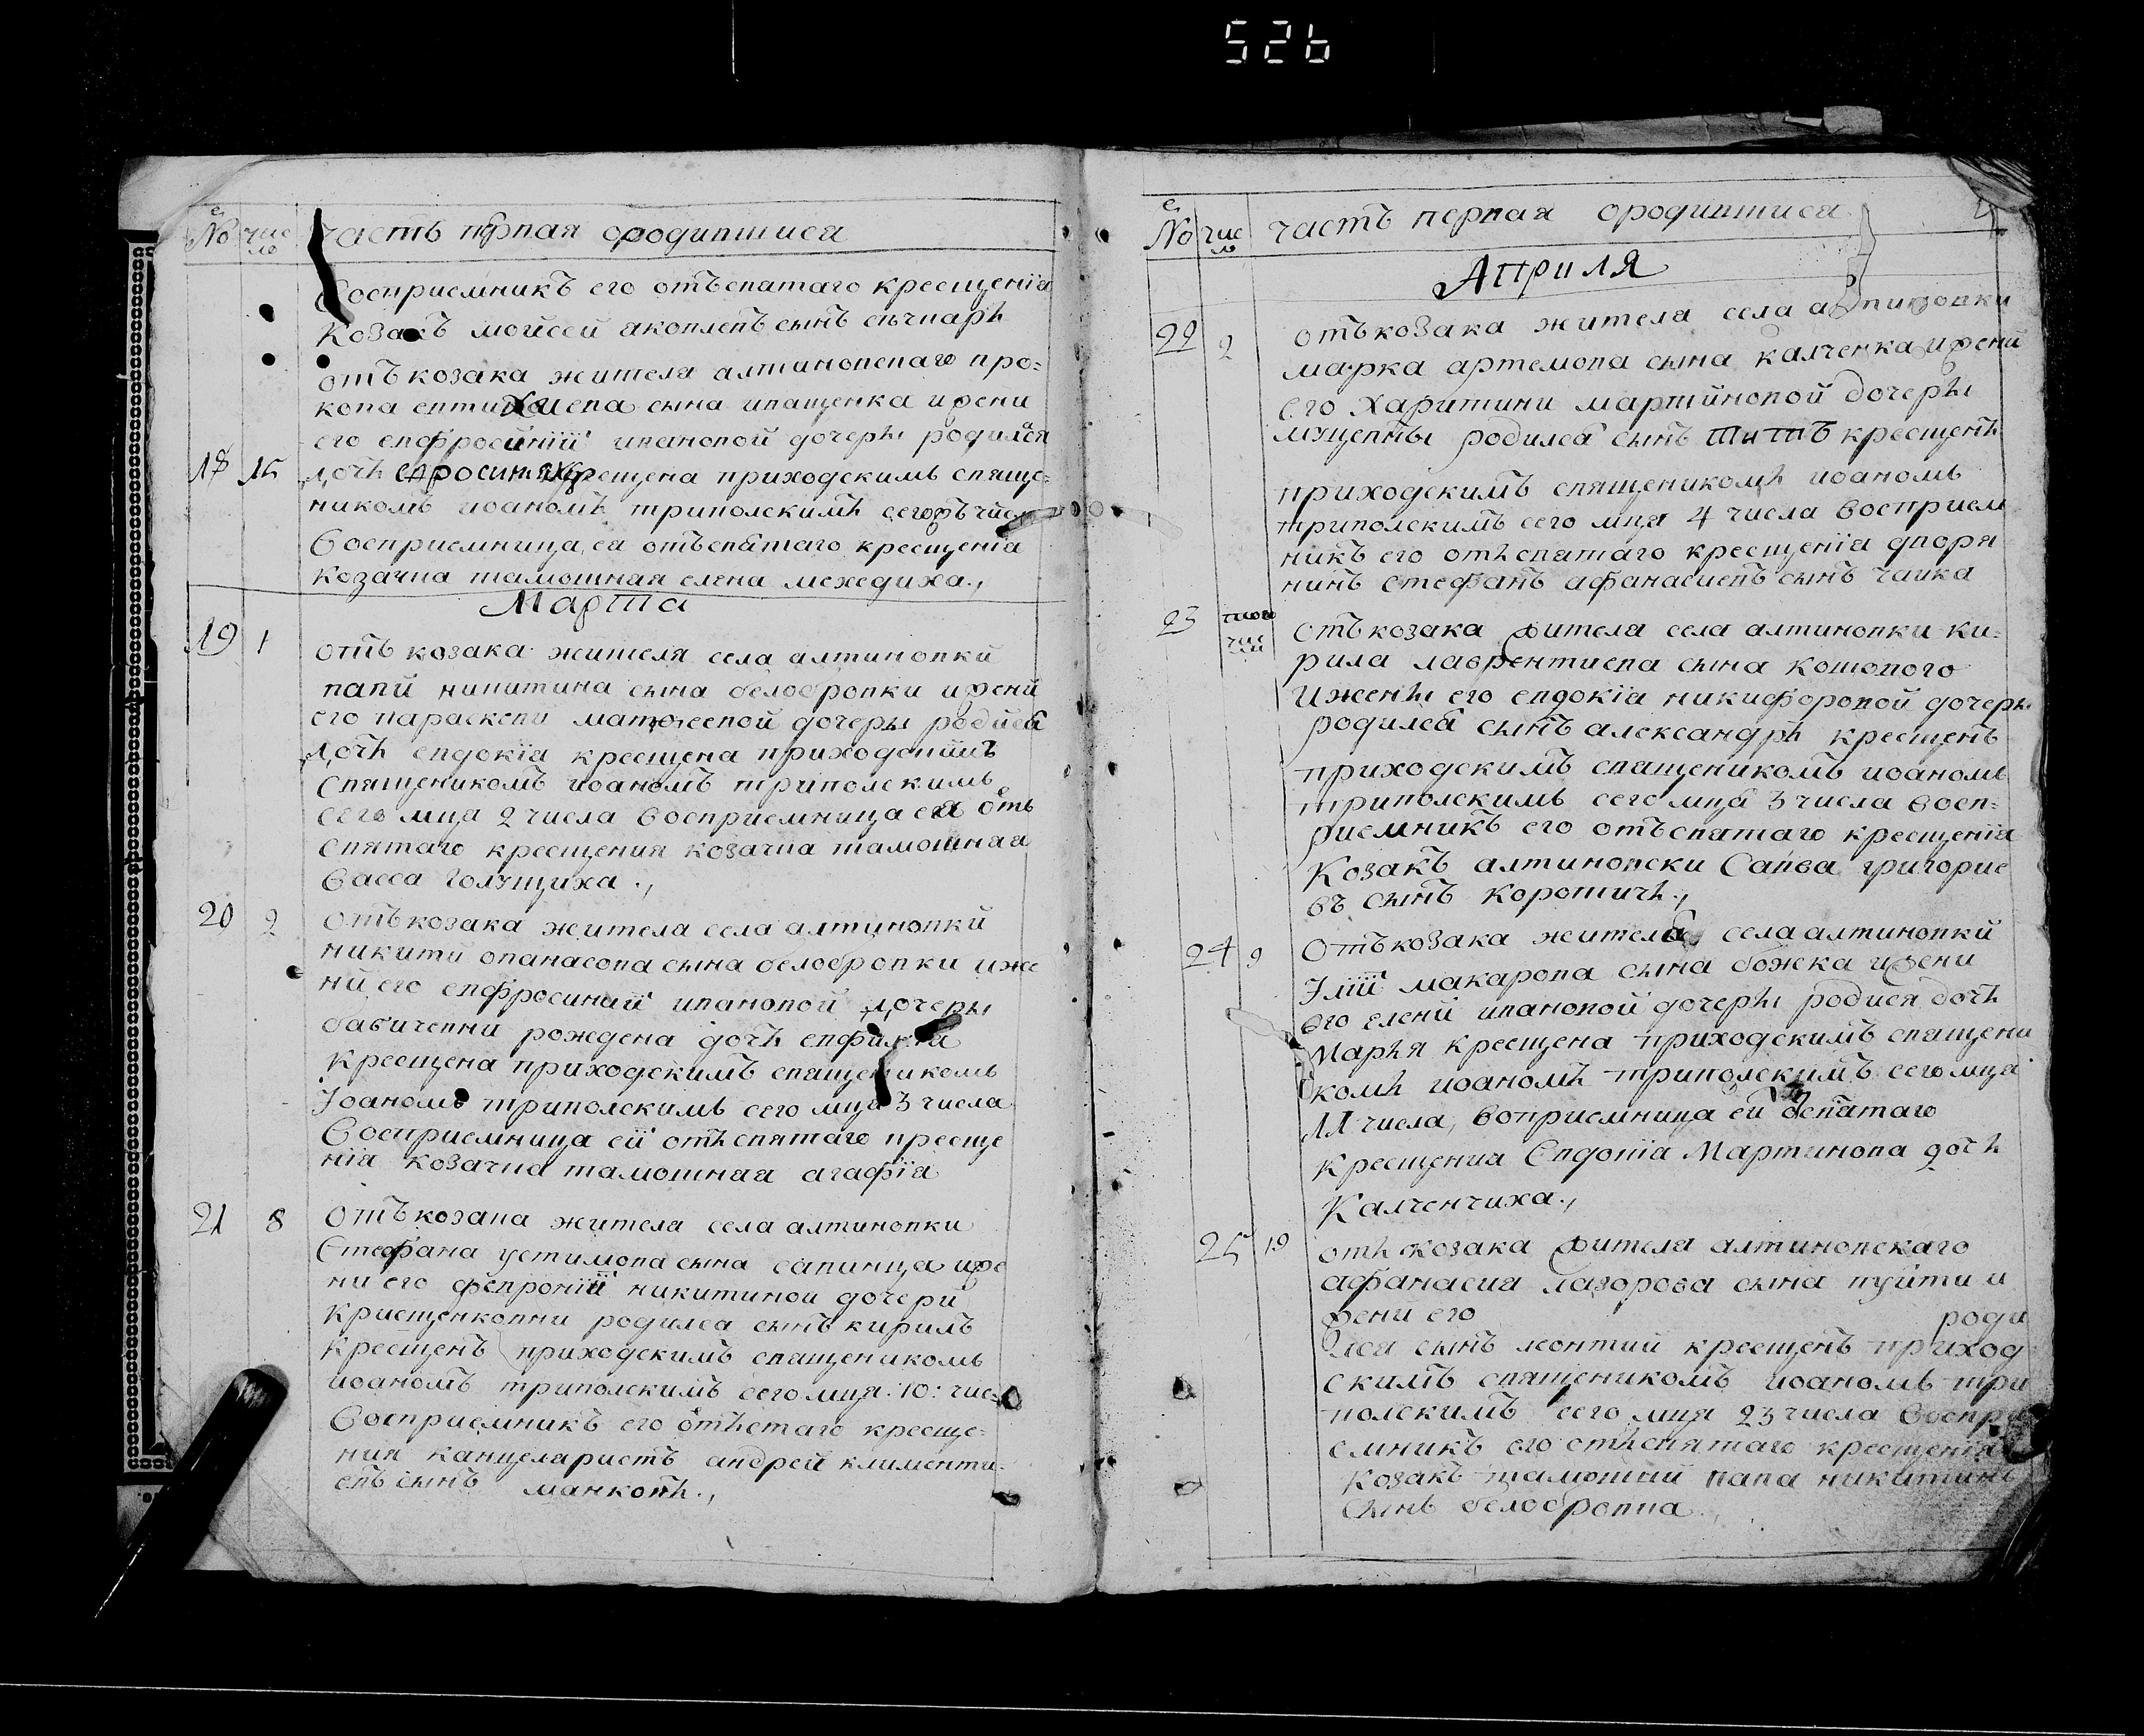 526
№ чис
ло
часть первая ородившися
Восприемникъ его отъ святаго крещенїя
Козакъ мойсей яковлевъ сынъ
отъ козака жителя алтиновскаго про=
копа евтихиева сына иващенка и жени
его евфросинїй ивановой дочери родился
18 15 дочь евросиния крещена приходскимъ свяще=
никомъ иоаномъ триполскимъ сегожъ числа
Восприемница ея отъ святаго крещенїя
козачка тамошная елена мехедиха.,
Марта
19 1 отъ козака жителя села алтиновки
савви никитина сына белобровки и жени
его параскеви матфеевой дочери родися
дочь евдокїя крещена приходскимъ
священикомъ иоаномъ триполскимъ
сего мця 2 числа восприемница ея отъ
святаго крещения козачка тамошная
васса голущиха.,
20 2 отъ козака жителя села алтиновки
никити опанасова сына белобровки и же
ни его евфросиний ивановой дочери
бабичевни рождена дочь евфимия
крещена приходскимъ священикомъ
Їоаномъ триполскимъ сего мця 3 числа
Восприемница ей отъ святаго креще
нїя козачка тамошная агафїя
21 8 Отъ козака жителя села алтиновки
Стефана устимова сына савинца и же
ни его февронїй никитиной дочери
крищенковни родился сынъ кирилъ
крещенъ приходскимъ священикомъ
иоаномъ триполскимъ сего мця :10: чис
Восприемникъ его отъ стаго креще=
ния канцеляристъ андрей клименти
евъ сынъ манковъ.,
№ чис
ло
часть первая ородившися 4
Априля
22 2 отъ козака жителя села алтиновки
марка артемова сына калченка и жени
его Харитини мартиновой дочери
родился сынъ титъ крещенъ
приходскимъ священикомъ иоаномъ
триполскимъ сего мця 4 числа восприем
никъ его отъ святаго крещенїя дворя
нинъ стефанъ афанасиевъ сынъ чайка
23 того
числа
отъ козака жителя села алтиновки ки=
рила лаврентиева сына кошового
и жени его евдокїя никифоровой дочери
родился сынъ александръ крещенъ
приходскимъ священикомъ иоаномъ
триполскимъ сего мця 3 числа восп=
риемникъ его отъ святаго крещенїя
Козакъ алтиновски Савва григорие
въ сынъ коротичъ.,
24 9 Отъ козака жителя села алтиновки
Їлїї макарова сына божка и жени
его елени ивановой дочери родися дочь
Марья крещена приходскимъ священи
комъ иоаномъ триполскимъ сего мця
11 числа, воприемница ей святаго
крещения Евдокїя Мартинова дочь
Калченчиха.,
25 19 отъ козака жителя алтиновскаго
афанасия лазорова сына пуйти и
жени его роди
лся сынъ леонтий крещенъ приход
скимъ священикомъ иоаномъ три
полскимъ сего мця 23 числа воспри
емникъ его отъ святаго крещения
козакъ тамошний сава никитинъ
сынъ белобровка.,